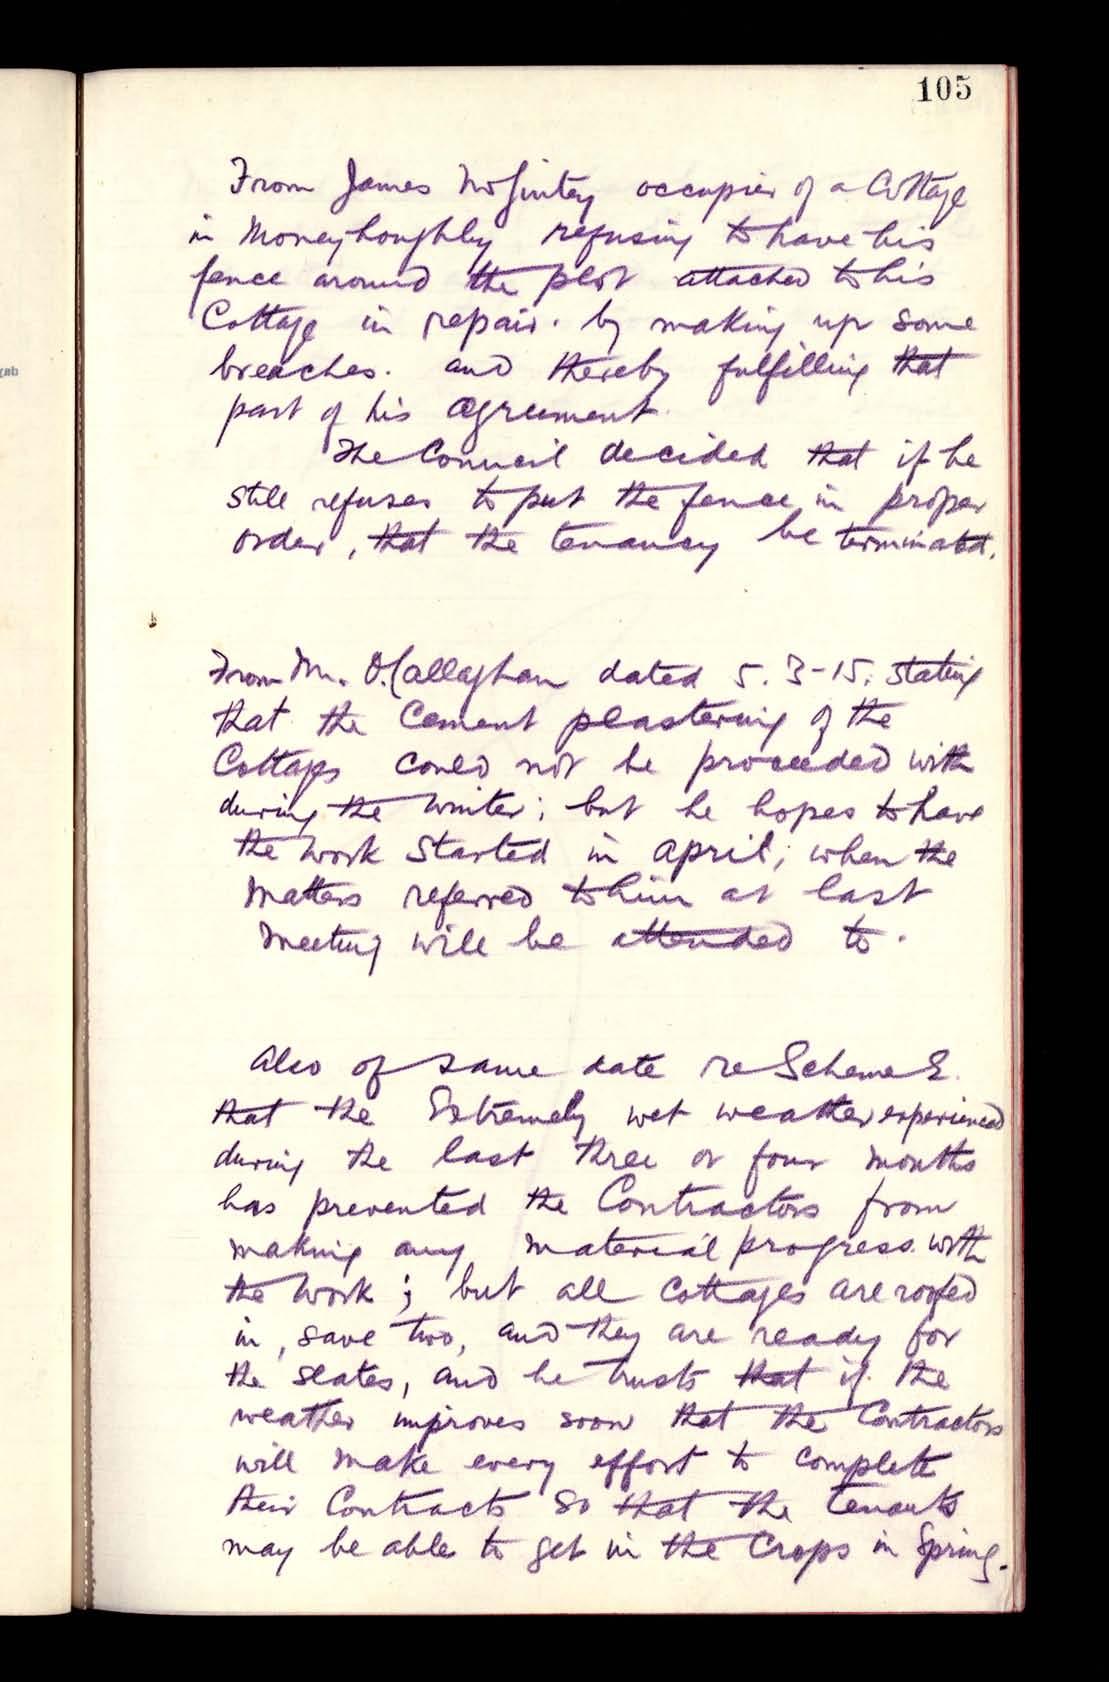 105
From James McGinty occupier of a Cottage
in Moneyhoughly refusing to have his
fence around the plot attached to his
Cottage in repair. by making up some
breaches. and thereby fulfilling that
part of his agreement.
The Council decided that if he
still refuses to put the fence in proper
order, that the tenancy be terminated.
From Mr. O'Callaghan dated 5.3-15. stating
that the Cement plastering of the
Cottages could not be proceeded with
during the Winter; but he hopes to have
the work started in april; when the
Matters referred to him at last
Meeting will be attended to.
Also of same date re Scheme E.
that the Extremely wet weather experienced
during the last three or four Months
has prevented the Contractors from
making any Material progress with
the Work; but all Cottages are roofed
in, save two, and they are ready for
the slates, and he trusts that if the
weather improves soon that the Contractors
will Make every effort to complete
their Contracts so that the tenants
may be able to get in the Crops in Spring.